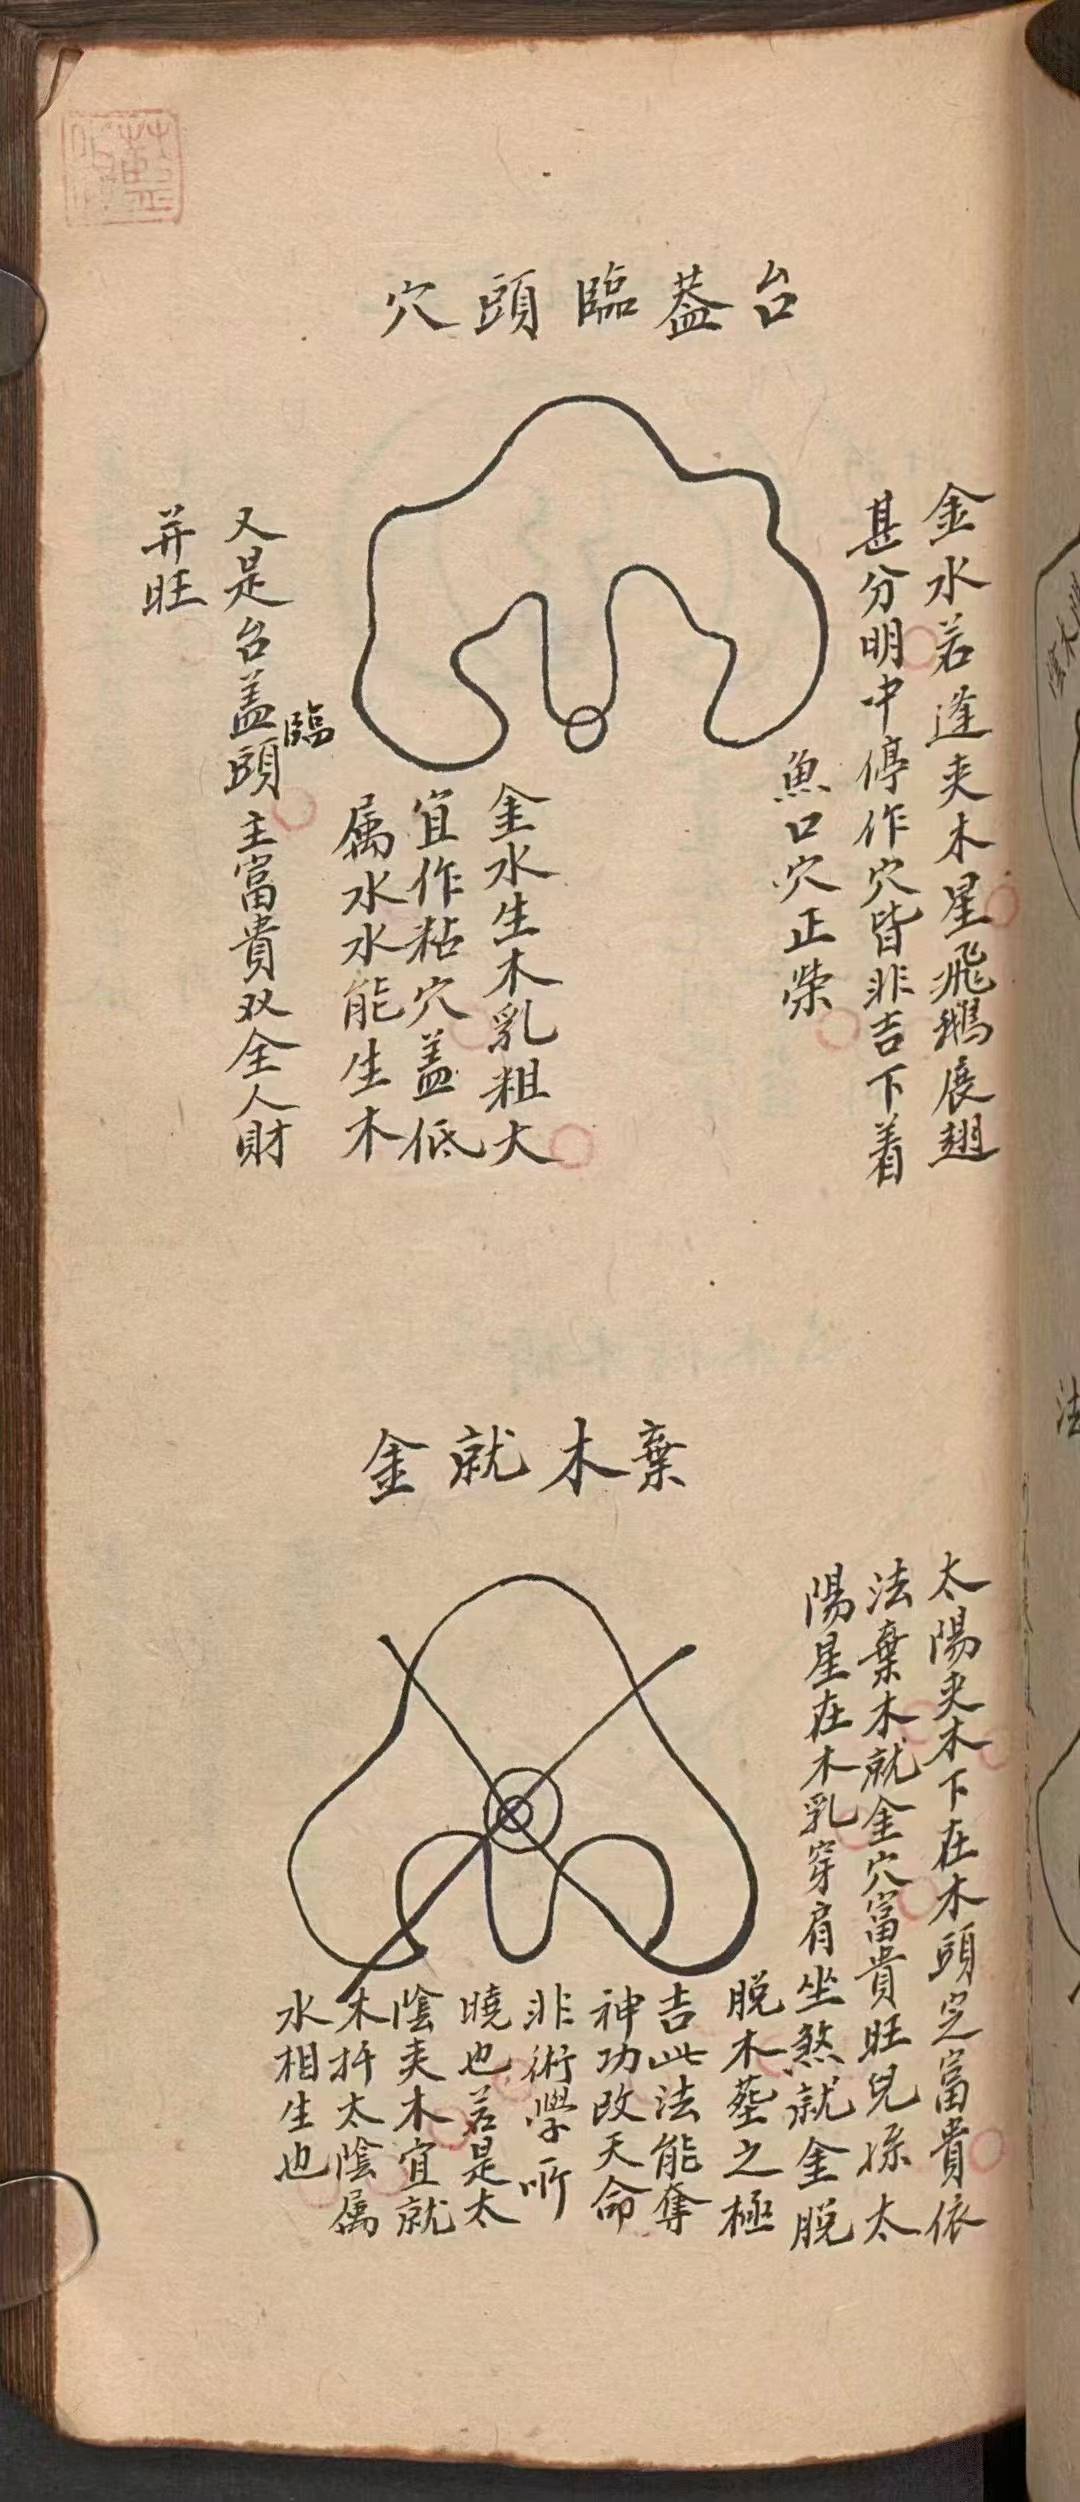 台蓋臨頭穴
金水若逢夾木星飛鵝展翅
甚分明中停作穴皆非吉下着
魚口穴正榮
金水生木乳粗大
宜作粘穴盖低
属水水能生木
又是台盖臨頭主富貴双全人財
并旺
棄木就金
太陽夾木下在木頭定富貴依
法棄木就金穴富貴旺兒孫太
陽星在木乳穿肩坐煞就金脱
脱木塟之極
吉此法能奪
神功改天命
非術學所
曉也若是太
陰夾木宜就
木扦太陰属
水相生也